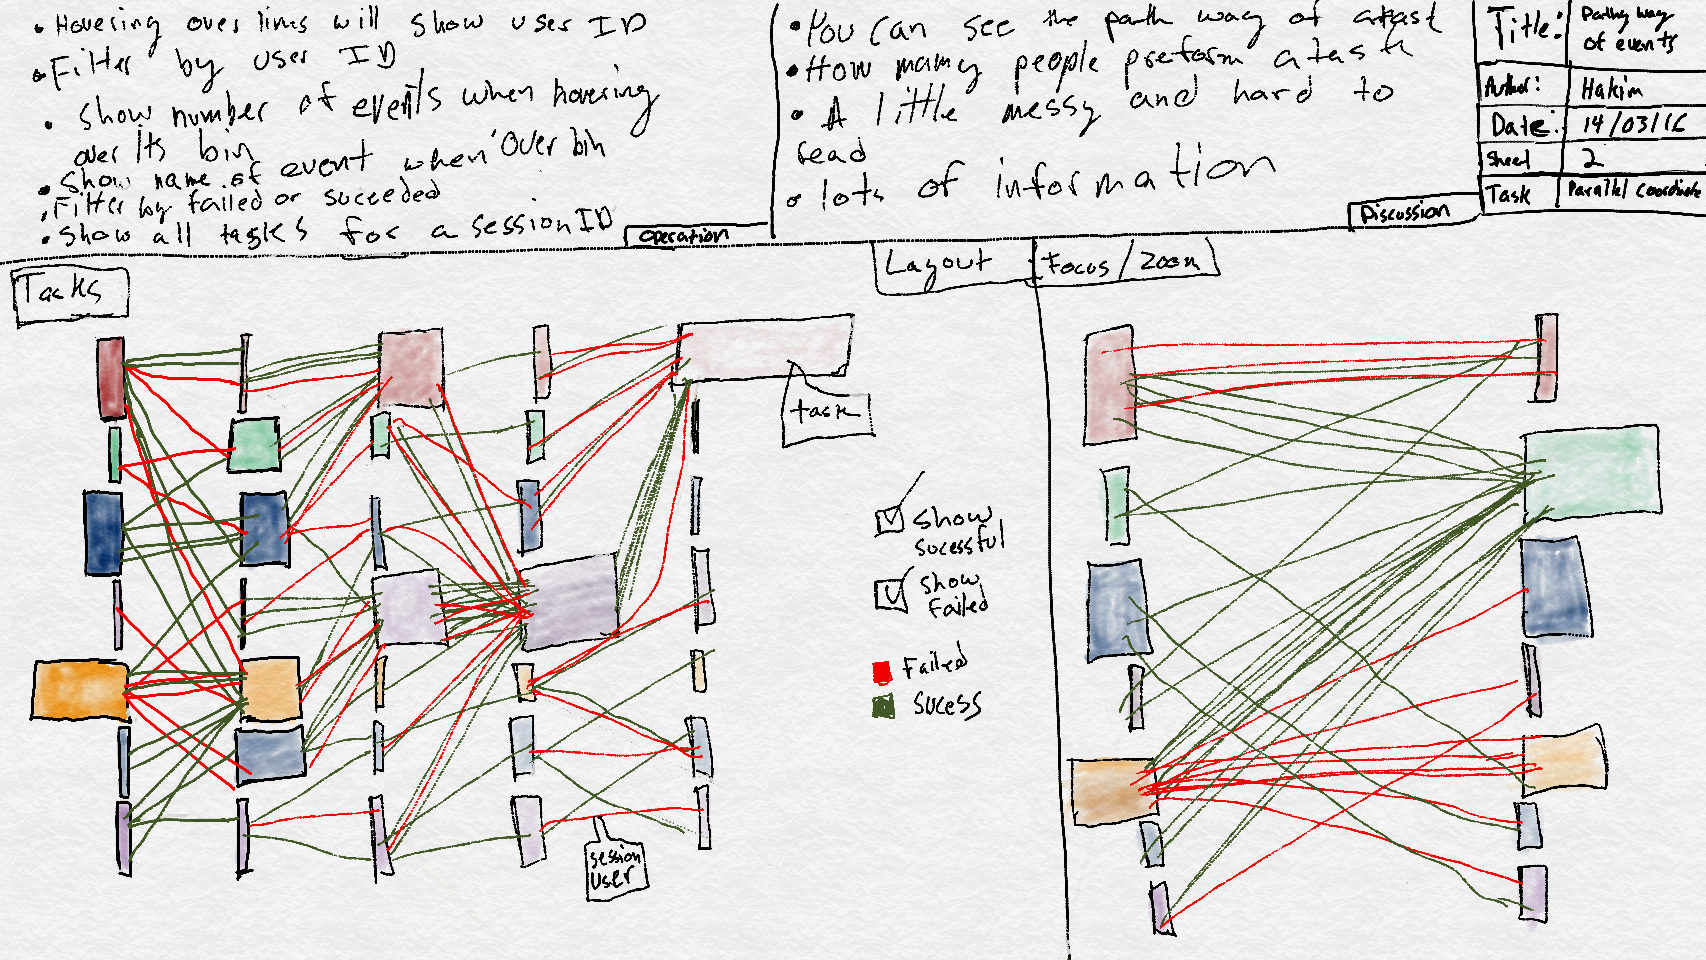 • Hovering over lines will show user ID
• Filter by user ID
• show number of events when hovering
over its bin
• show name of event when over bin
• Filter by failed or succeeded
• show all tasks for a session ID
Operation
• You can see the path way of a task
• How many people preform a task
• A little messy and hard to
read
• lots of information
Discussion
Title: Pathy way
of events
Author: Hakim
Date: 14/03/16
Sheet 2
Task Parallel coordinate
Layout
Focus/Zoom
Tasks
task
show
sucessful
show
failed
Failed
Sucess
session
user